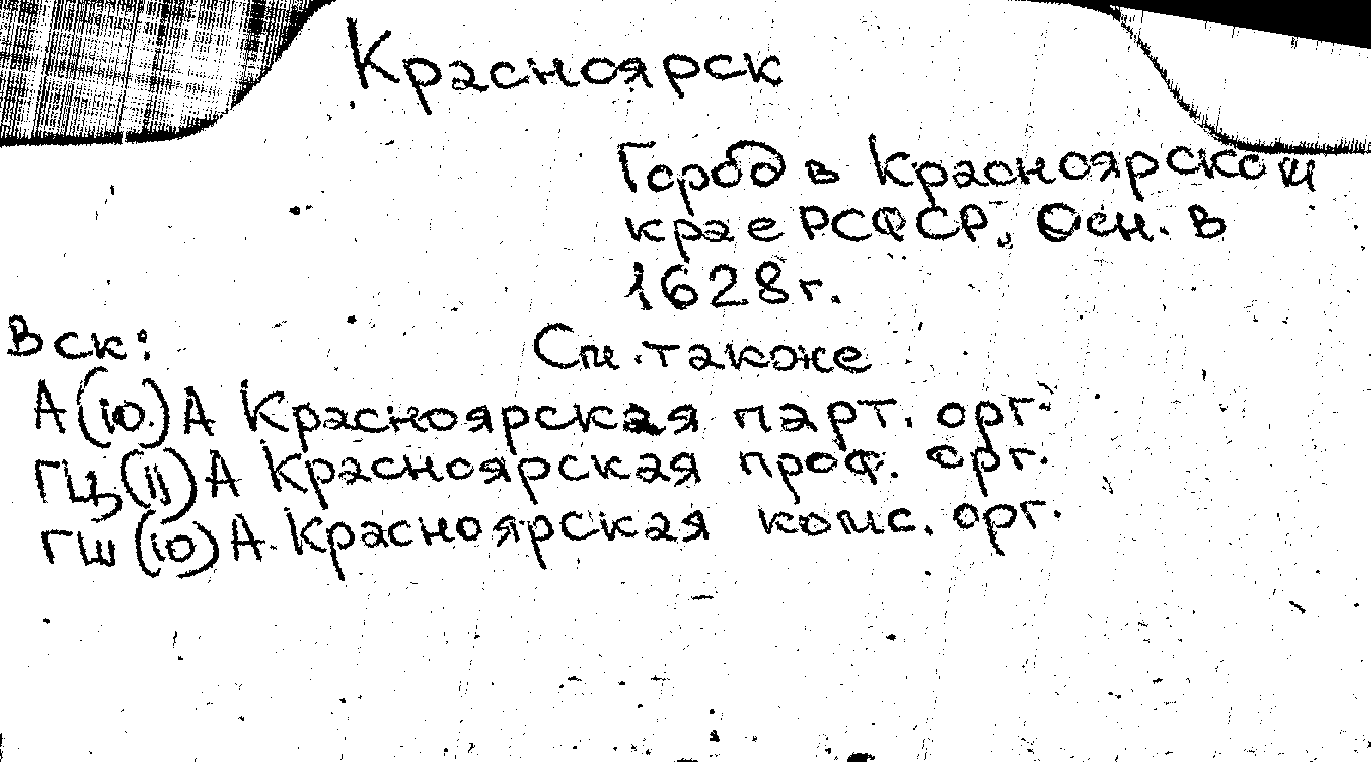 Красноярск
Город в Красноярском
крае РСФСР. Осн. в
1628 г.
В ск:
См. также
А(10.)А Красноярская парт. орг.
ГЦ(11)А Красноярская проф. орг.
ГШ(10)А. Красноярская комс. орг.